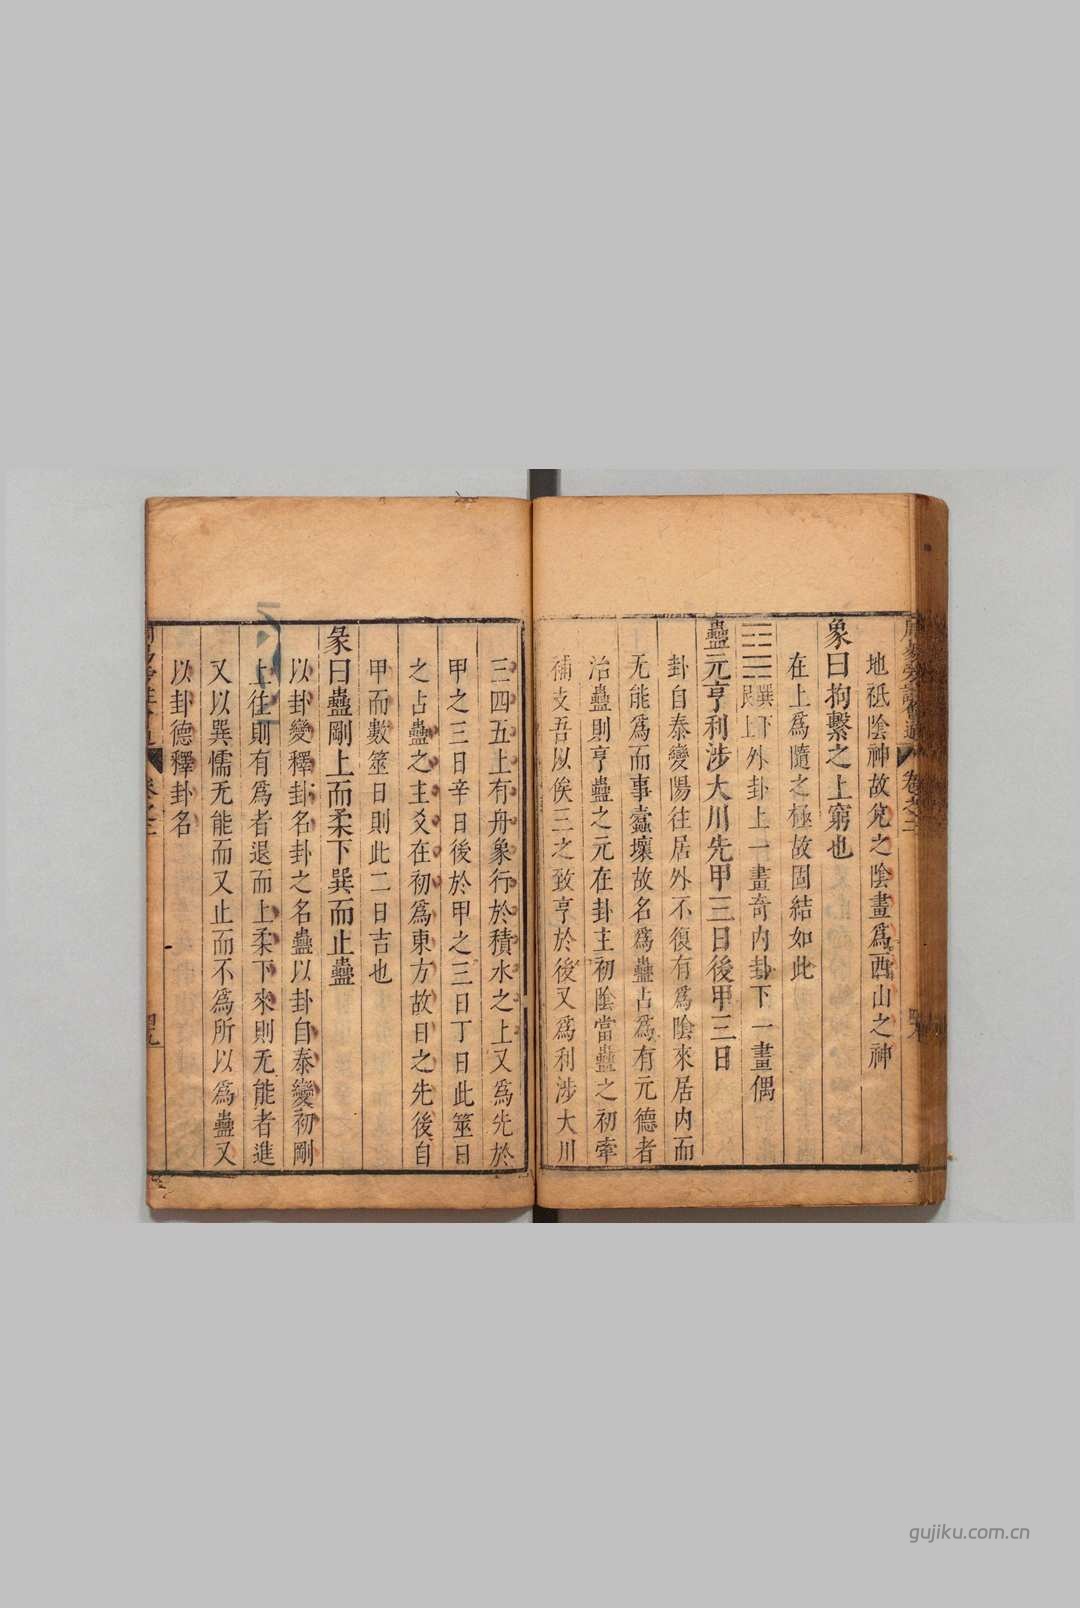 地祇陰神故兌之陰畫爲西山之神
象曰拘繫之上窮也
在上爲隨之極故固結如此
巽下艮上 外卦上一畫奇内卦下一畫偶
蠱元亨利涉大川先甲三日後甲三日
卦自泰變陽往居外不復有爲陰來居内而
无能爲而事蠹壞故名爲蠱占爲有元德者
治蠱則亨蠱之元在卦主初陰當蠱之初牽
補支吾以俟三之致亨於後又爲利涉大川
三四五上有舟象行於積水之上又爲先於
甲之三日辛日後於甲之三日丁日此筮日
之占蠱之主爻在初爲東方故日之先後自
甲而數筮日則此二日吉也
彖曰蠱剛上而柔下巽而止蠱
以卦變釋卦名卦之名蠱以卦自泰變初剛
上往則有爲者退而上柔下來則无能者進
又以巽懦无能而又止而不爲所以爲蠱又
以卦德釋卦名
卷之二
四九
gujiku.com.cn